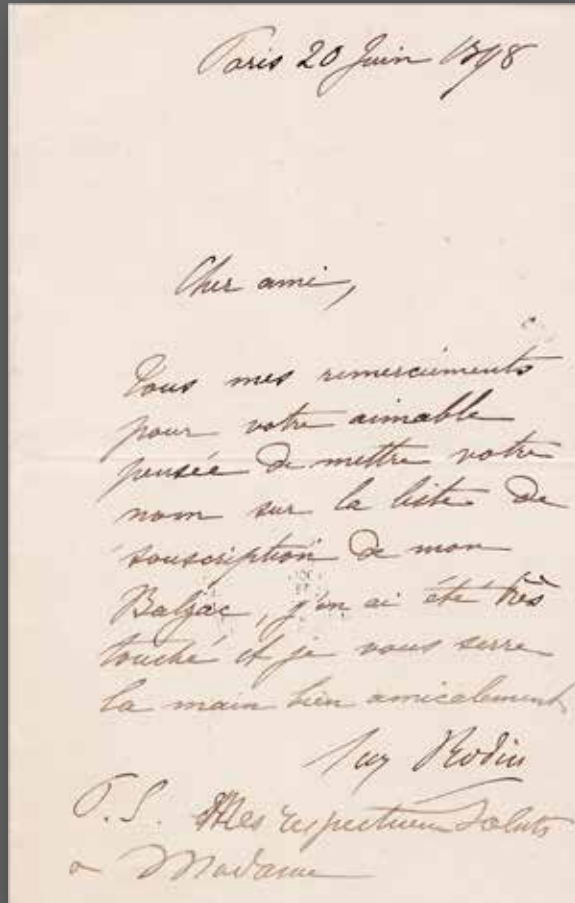 Paris 20 Juin 1898
Cher ami,
Tous mes remerciements
pour votre aimable
pensée de mettre votre
nom sur la liste de
souscription de mon
Balzac, j'en ai été très
touché et je vous serre
la main bien amicalement
Aug Rodin
P.S. Mes respectueux saluts
a Madame